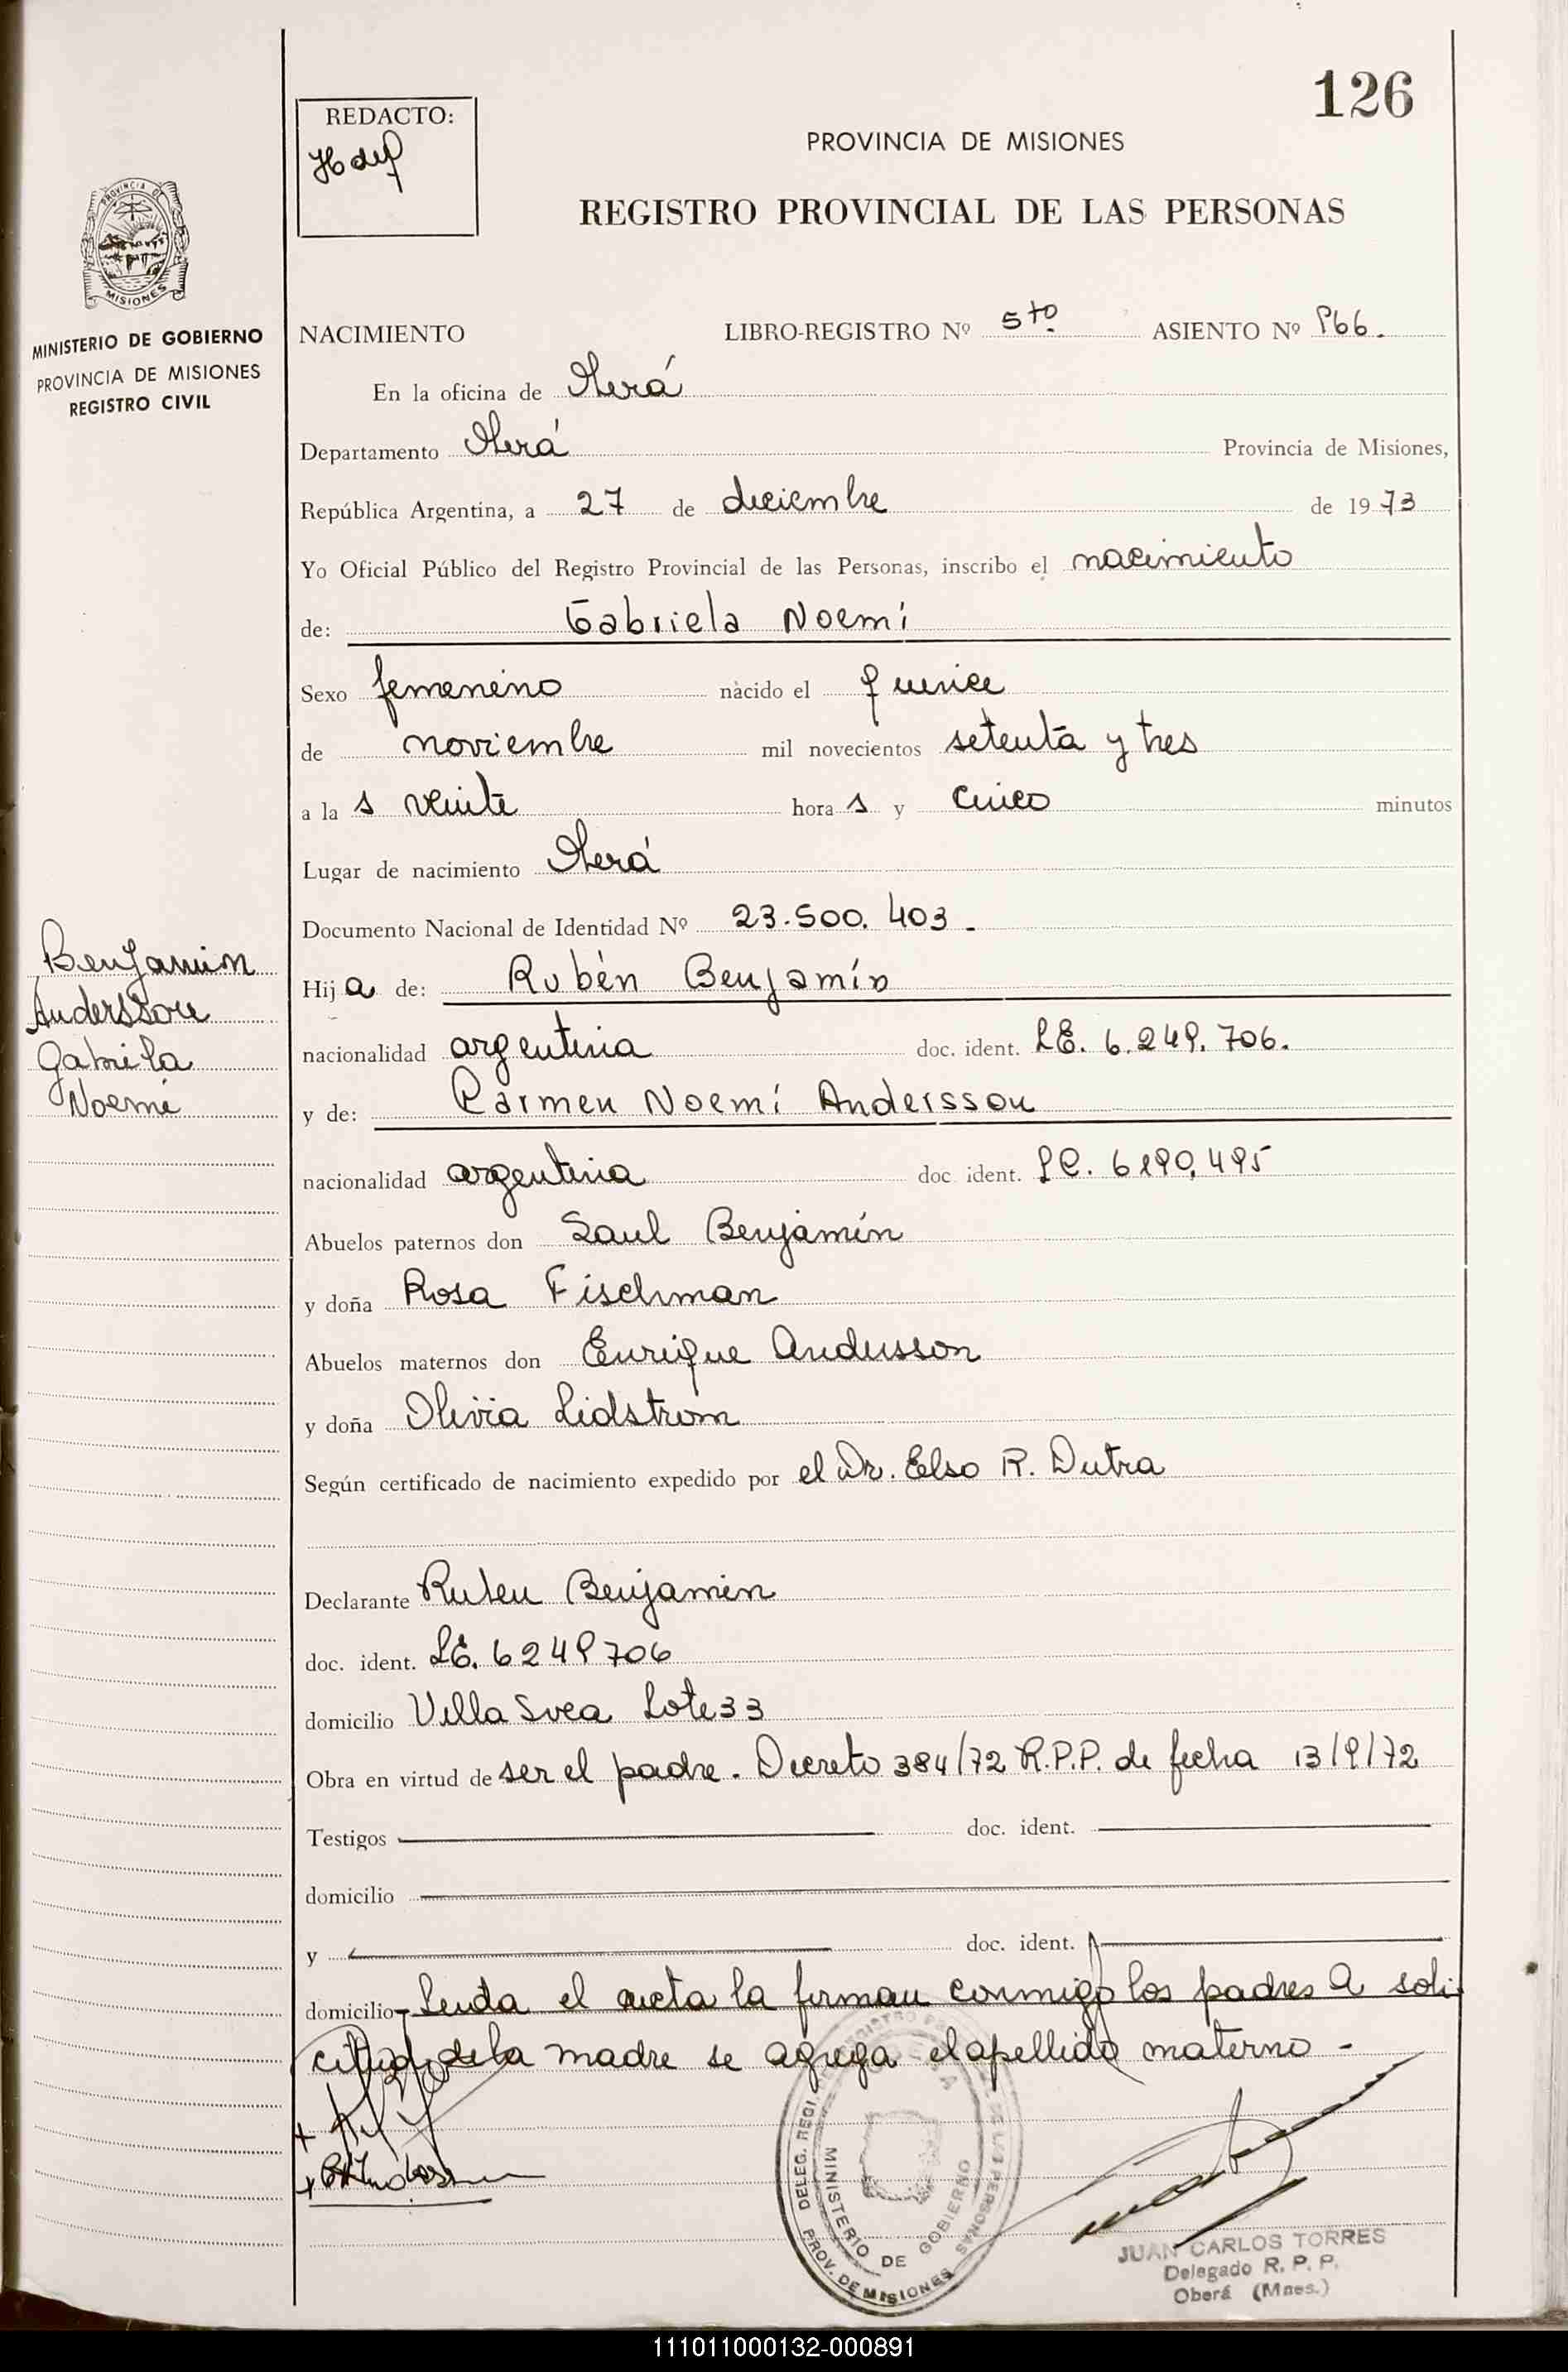 126
REDACTO:
PROVINCIA DE MISIONES
REGISTRO PROVINCIAL DE LAS PERSONAS
PROVINCIA DE
MISIONES
MINISTERIO DE GOBIERNO
PROVINCIA DE MISIONES
REGISTRO CIVIL
NACIMIENTO LIBRO-REGISTRO Nº 5to. ASIENTO Nº 966.
En la oficina de Oberá
Departamento Oberá Provincia de Misiones,
República Argentina, a 27 de diciembre de 1973
Yo Oficial Público del Registro Provincial de las Personas, inscribo el nacimiento
de: Gabriela Noemí
Sexo femenino nacido el quince
de noviembre mil novecientos setenta y tres
a la s veinte hora s y cinco minutos
Lugar de nacimiento Oberá
Documento Nacional de Identidad Nº 23.500.403.
Benjamin
Andersson
Gabriela
Noemi
Hij a de: Rubén Benjamín
nacionalidad argentina doc. ident. LE. 6.249.706.
y de: Carmen Noemí Andersson
nacionalidad argentina doc ident. LC. 6190,495
Abuelos paternos don Saul Benjamín
y doña Rosa Fischman
Abuelos maternos don Enrique Andersson
y doña Olivia Lidstrom
Según certificado de nacimiento expedido por el Dr. Elso R. Dutra
Declarante Ruben Benjamin
doc. ident. LE. 6249706
domicilio Villa Svea Lote 33
Obra en virtud de ser el padre. Decreto 384/72 R.P.P. de fecha 13/9/72
Testigos doc. ident.
domicilio
y doc. ident.
domicilio - Leida el acta la firman conmigo los padres a soli
citud de la madre se agrega el apellido materno -
DELEG. REGI. DE LAS PERSONAS
MINISTERIO DE GOBIERNO
PROV. DE MISIONES
JUAN CARLOS TORRES
Delegado R. P. P.
Oberá (Mnes.)
111011000132-000891